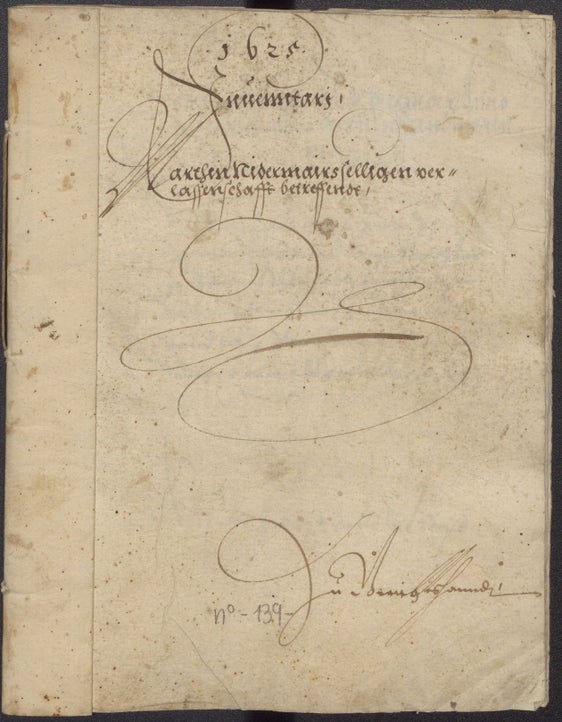 1625
Inuentari
Marthin Nidermairs selligen ver-
lassenschafft betreffendt,
Zu Gerichtshanndt
nº - 139 -